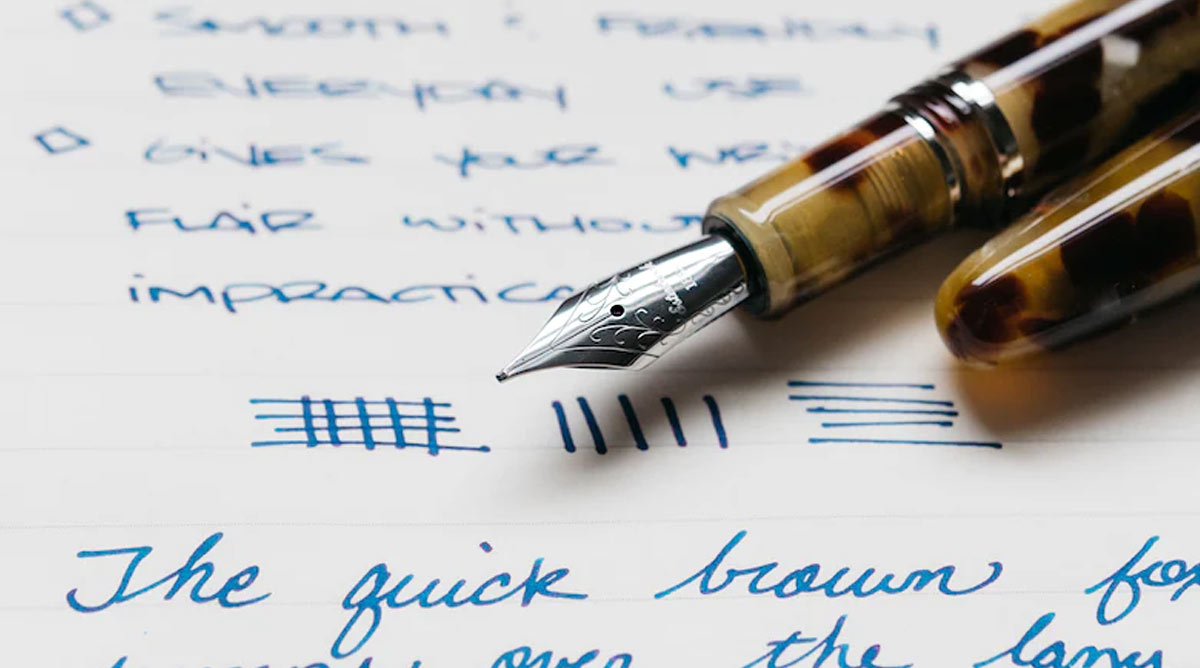 ◇ SMOOTH & FRIENDLY
EVERYDAY USE
◇ GIVES YOUR WRI
FLAIR WITHOU
IMPRACTICA
The quick brown fox
over the lazy